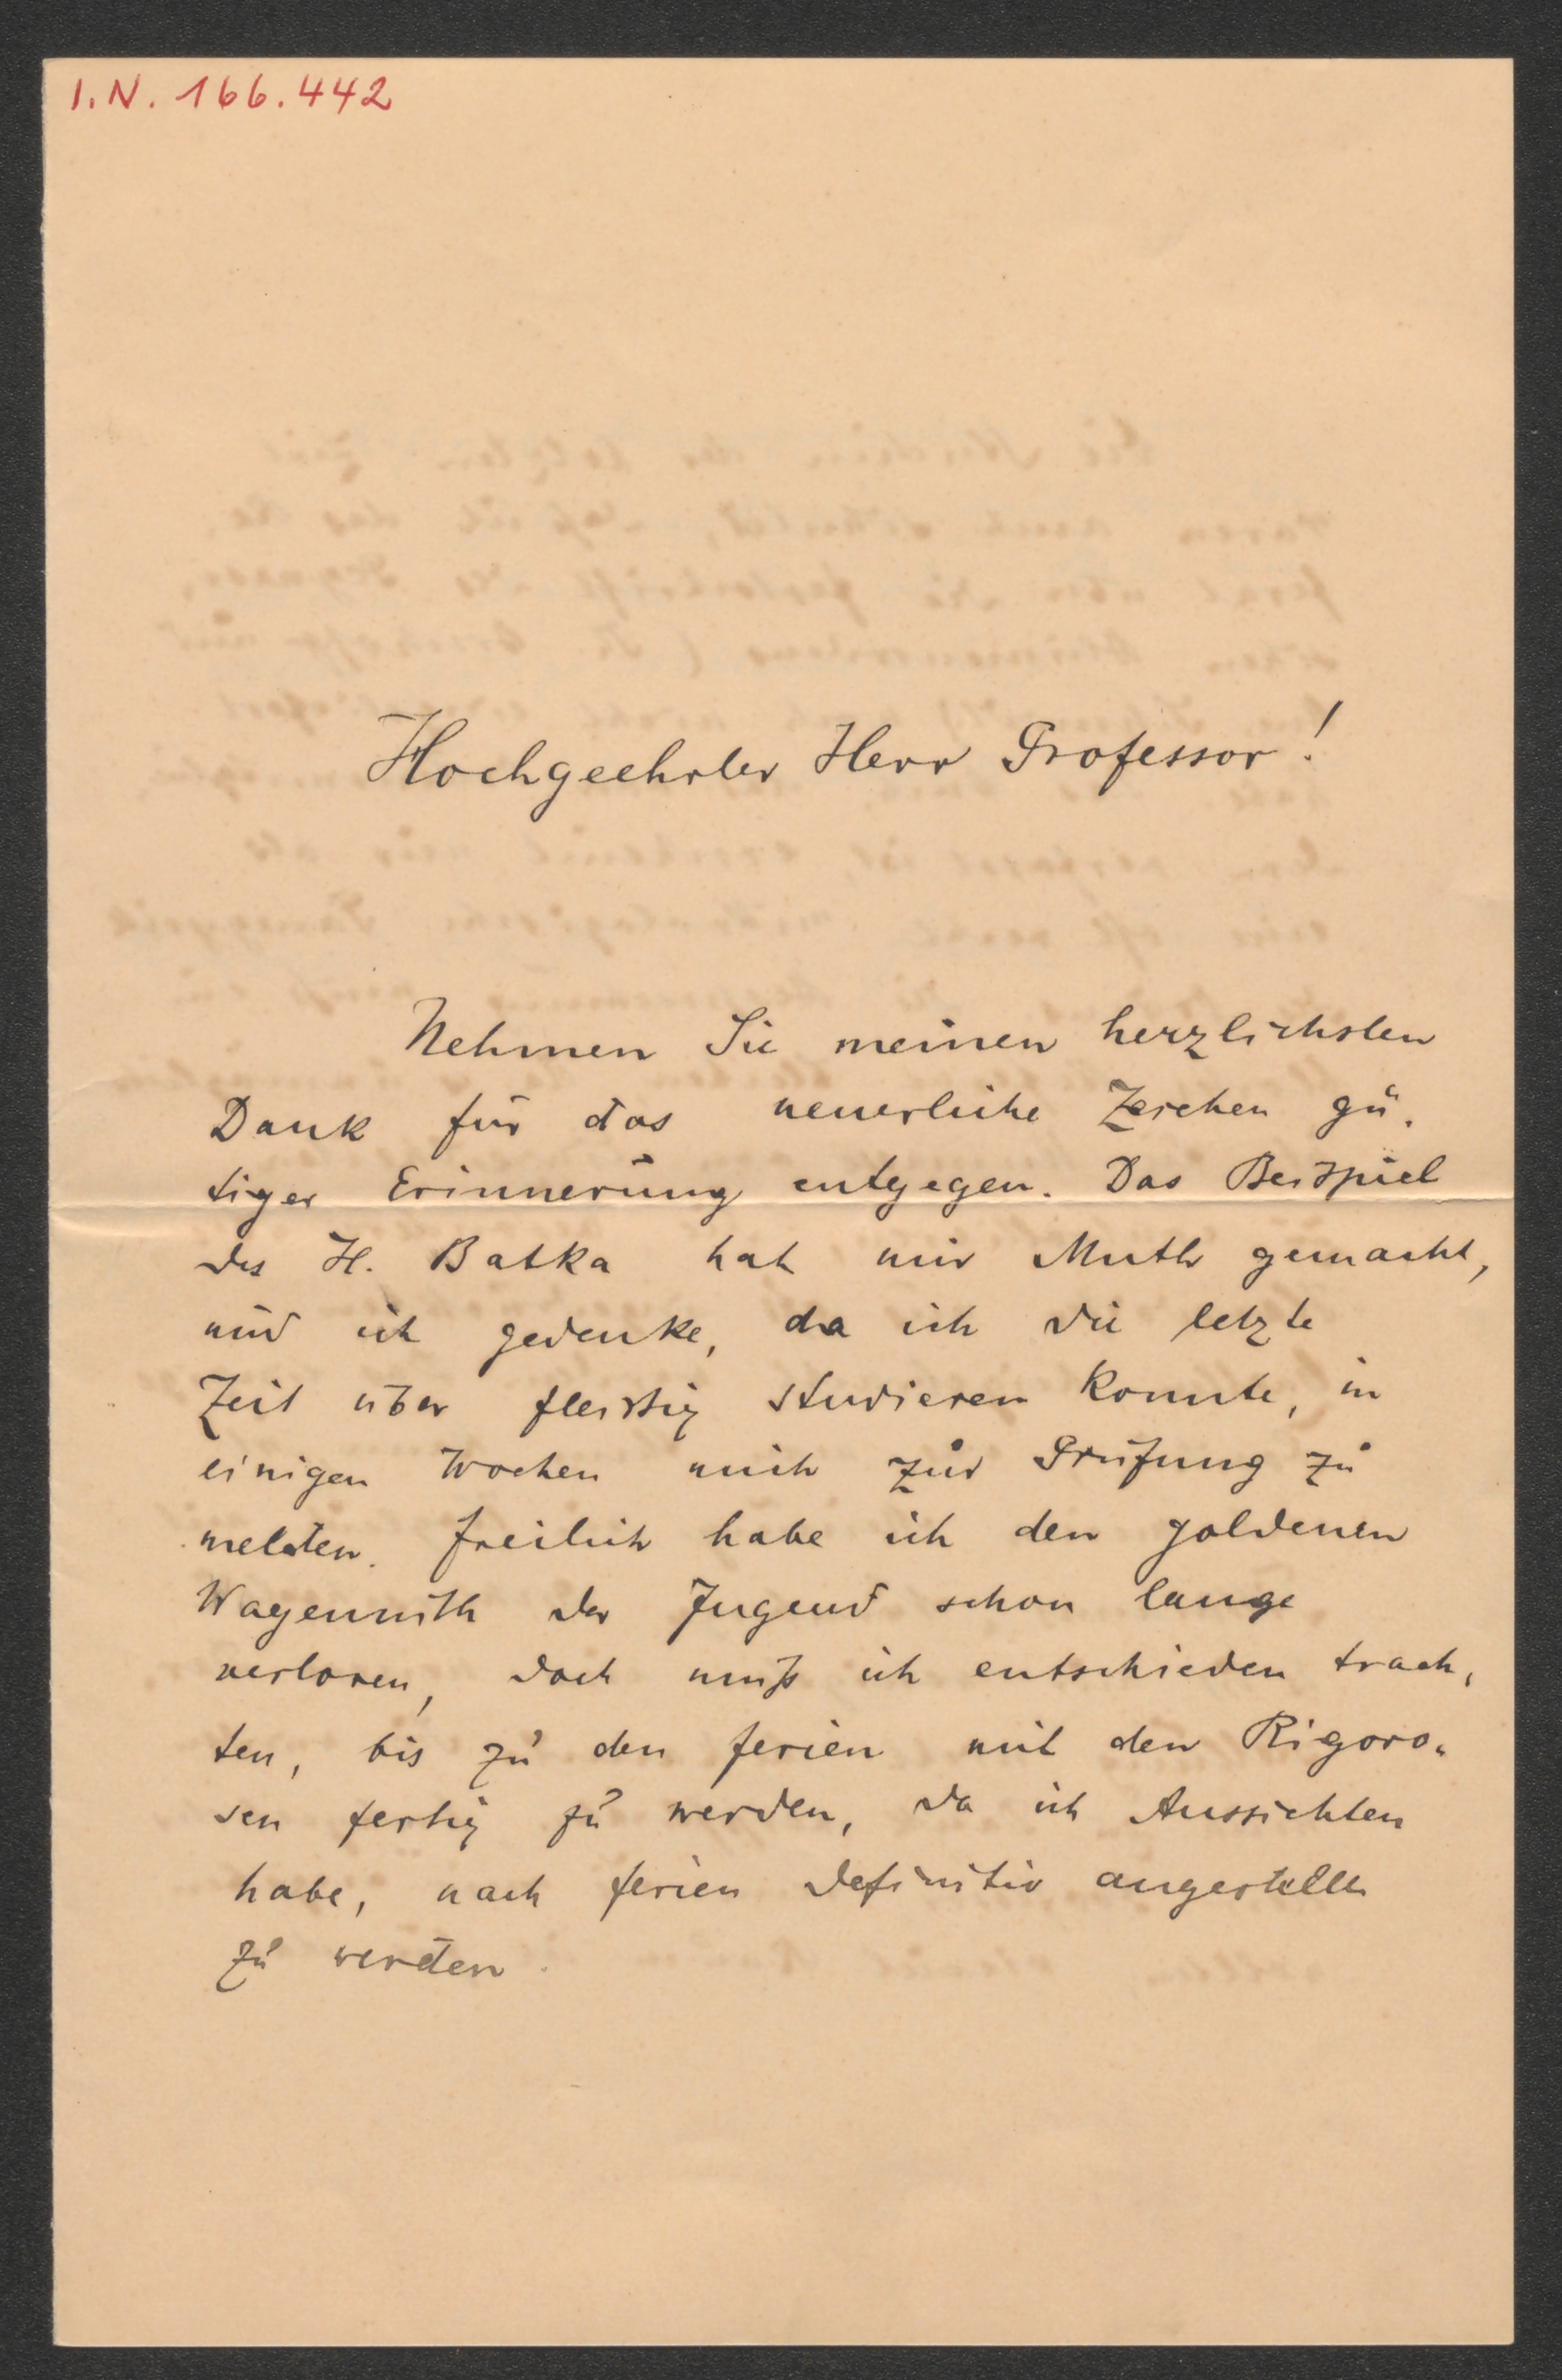 I.N. 166.442
Hochgeehrter Herr Professor!
Nehmen Sie meinen herzlichsten
Dank für das neuerliche Zeichen gü-
tiger Erinnerung entgegen. Das Beispiel
des H. Batka hat mir Muth gemacht,
und ich gedenke, da ich die letzte
Zeit über fleissig studieren konnte, in
einigen Wochen mich zur Prüfung zu
melden. Freilich habe ich den goldenen
Wagemuth der Jugend schon lange
verloren, doch muß ich entschieden trach-
ten, bis zu den Ferien mit den Rigoro-
sen fertig zu werden, da ich Aussichten
habe, nach Ferien definitiv angestellt
zu werden.